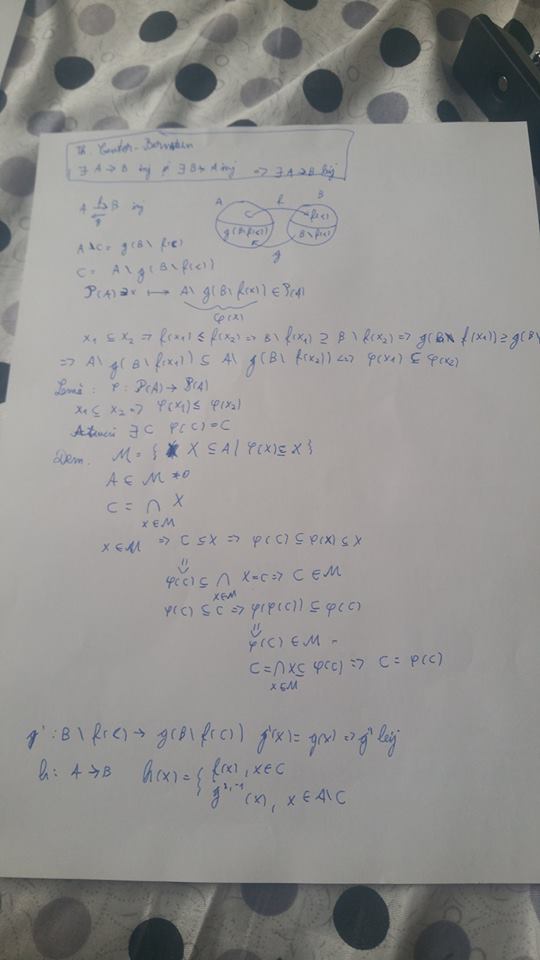 Th. Cantor-Bernstein
∃ A → B inj și ∃ B → A inj ⇒ ∃ A → B bij
A ⇄ B inj
f
g
A B
f
C f(C)
g(B\f(C)) B\f(C)
g
A\C = g(B\f(C))
C = A\g(B\f(C))
P(A) ∋ x ⟼ A\g(B\f(x)) ∈ P(A)
φ(x)
x₁ ⊆ x₂ ⇒ f(x₁) ⊆ f(x₂) ⇒ B\f(x₁) ⊇ B\f(x₂) ⇒ g(B\f(x₁)) ⊇ g(B\
⇒ A\g(B\f(x₁)) ⊆ A\g(B\f(x₂)) ⇔ φ(x₁) ⊆ φ(x₂)
Lemă: φ: P(A) → P(A)
x₁ ⊆ x₂ ⇒ φ(x₁) ⊆ φ(x₂)
Atunci ∃ C φ(C) = C
Dem. M = { X ⊆ A | φ(X) ⊆ X }
A ∈ M ≠ ∅
C = ∩ X
X∈M
X ∈ M ⇒ C ⊆ X ⇒ φ(C) ⊆ φ(X) ⊆ X
⇓
φ(C) ⊆ ∩ X = C ⇒ C ∈ M
X∈M
φ(C) ⊆ C ⇒ φ(φ(C)) ⊆ φ(C)
⇓
φ(C) ∈ M
C = ∩ X ⊆ φ(C) ⇒ C = φ(C)
X∈M
g' : B\f(C) → g(B\f(C)) g'(x) = g(x) ⇒ g' bij
h: A → B h(x) = { f(x), x ∈ C
g'⁻¹(x), x ∈ A\C